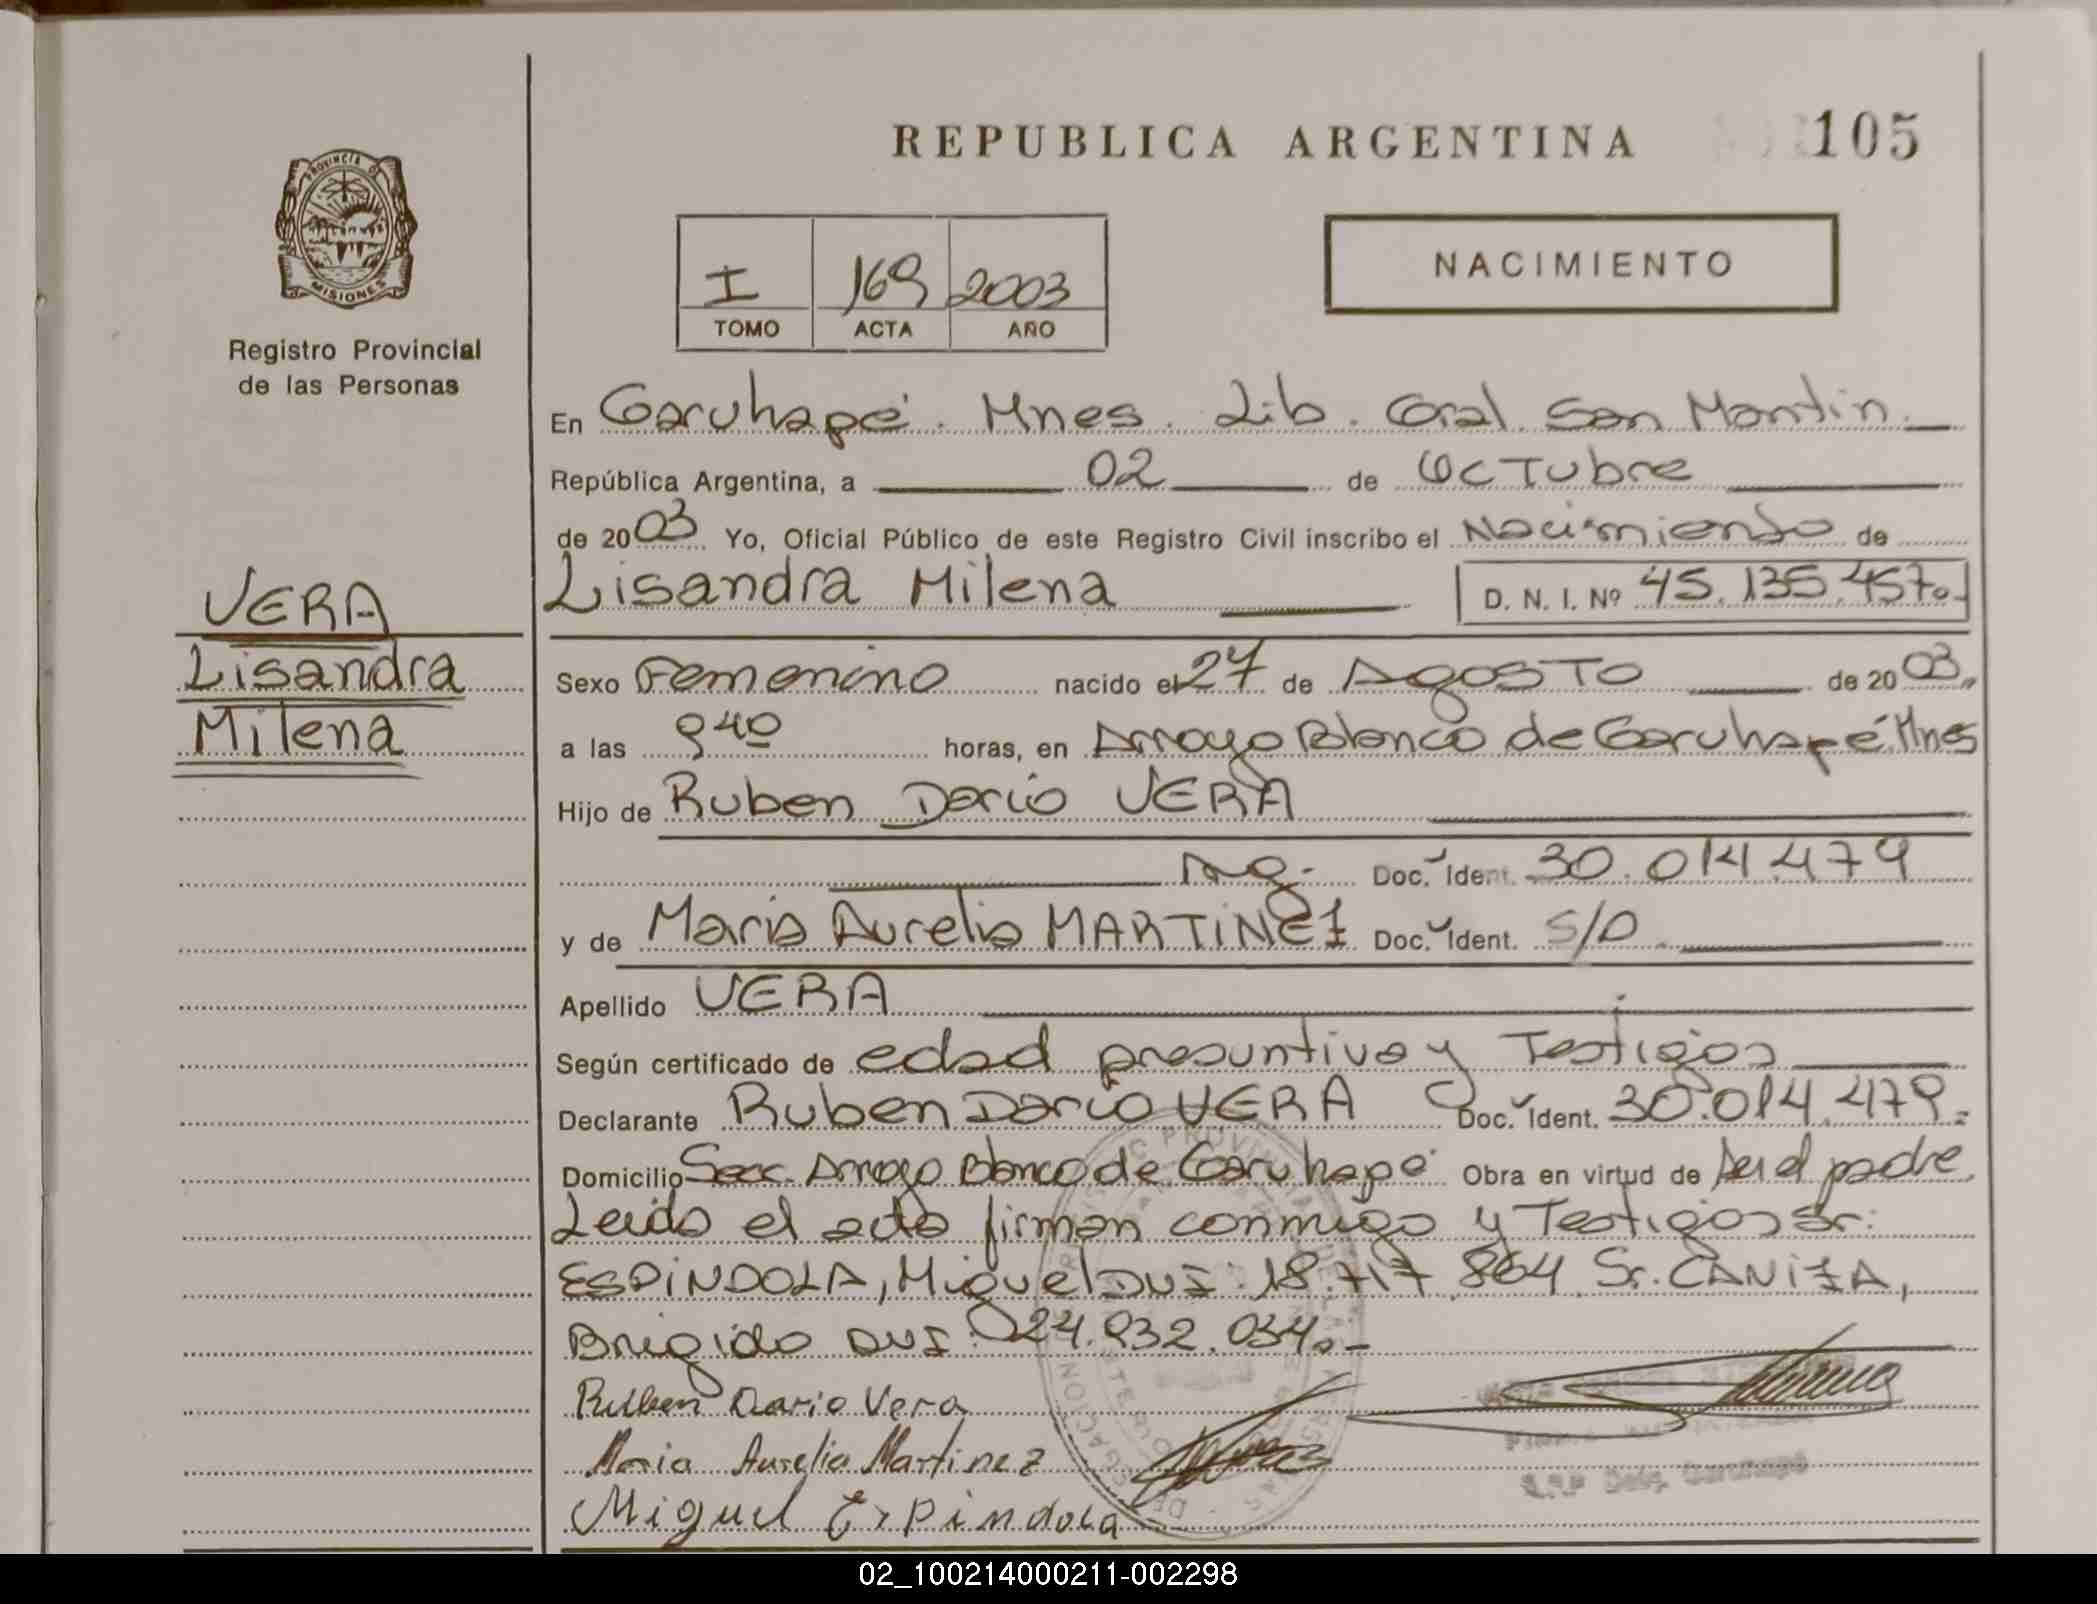 REPUBLICA ARGENTINA
105
PROVINCIA DE
MISIONES
Registro Provincial
de las Personas
I 169 2003
TOMO ACTA AÑO
NACIMIENTO
VERA
Lisandra
Milena
En Garuhapé. Mnes. Lib. Gral. San Martín.
República Argentina, a 02 de Octubre
de 2003 Yo, Oficial Público de este Registro Civil inscribo el Nacimiento de
Lisandra Milena D. N. I. Nº 45.135.457.-
Sexo Femenino nacido el 27 de Agosto de 2003.
a las 9 40 horas, en Arroyo Blanco de Garuhapé Mnes
Hijo de Ruben Dario VERA
Ag. Doc. Ident. 30.014.479
y de Maria Aurelia MARTINEZ Doc. Ident. S/D.
Apellido VERA
Según certificado de edad presuntiva y Testigos
Declarante Ruben Dario VERA Doc. Ident. 30.014.479.=
Domicilio Secc. Arroyo Blanco de Garuhapé Obra en virtud de ser el padre.
Leida el acta firman conmigo y Testigos Sr:
ESPINDOLA, Miguel DNI: 18.717.864 Sr. CANIZA,
Brigido DNI: 24.932.034.-
Ruben Dario Vera
Maria Aurelia Martinez
Miguel Espindola
02_100214000211-002298